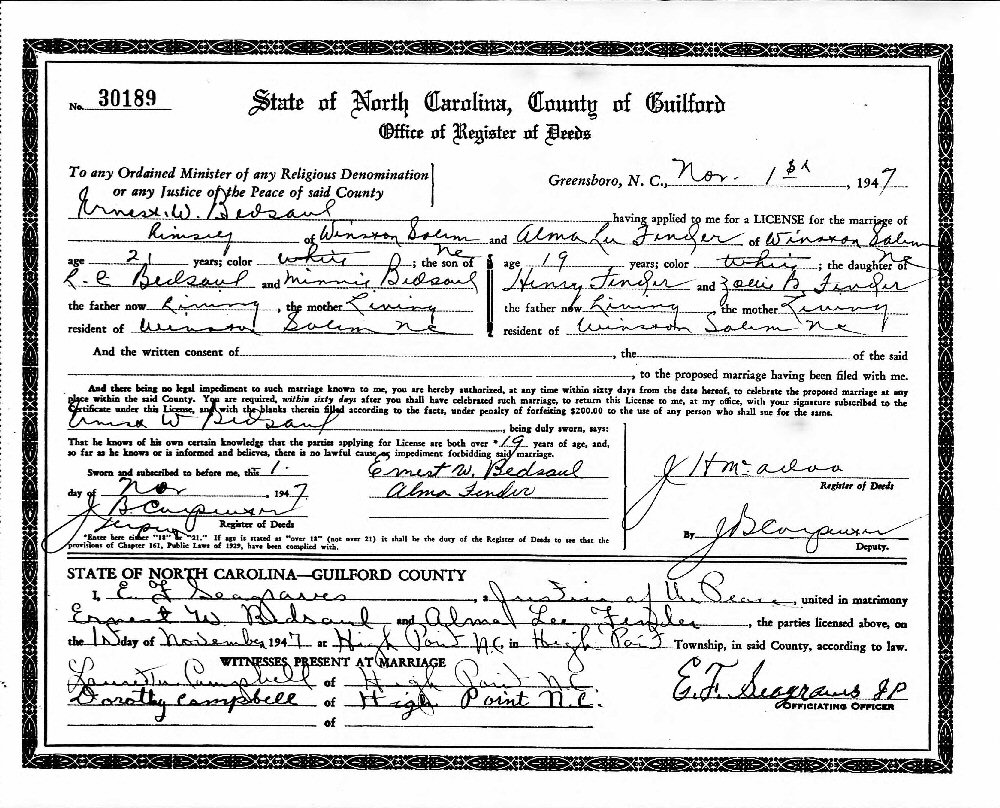 No. 30189
State of North Carolina, County of Guilford
Office of Register of Deeds
To any Ordained Minister of any Religious Denomination
or any Justice of the Peace of said County
Greensboro, N. C., Nov. 1st, 1947
Ernest W. Bedsaul having applied to me for a LICENSE for the marriage of
of Winston Salem and Alma Lee Fender of Winston Salem
age 21 years; color white; the son of NC
age 19 years; color white; the daughter of NC
Bedsaul and Minnie Bedsaul
Henry Fender and B Fender
the father now Living, the mother Living
the father now Living the mother Living
resident of Winston Salem NC
resident of Winston Salem NC
And the written consent of , the of the said
, to the proposed marriage having been filed with me.
And there being no legal impediment to such marriage known to me, you are hereby authorized, at any time within sixty days from the date hereof, to celebrate the proposed marriage at any
place within the said County. You are required, within sixty days after you shall have celebrated such marriage, to return this License to me, at my office, with your signature subscribed to the
Certificate under this License, and with the blanks therein filled according to the facts, under penalty of forfeiting $200.00 to the use of any person who shall sue for the same.
Ernest W Bedsaul, being duly sworn, says:
That he knows of his own certain knowledge that the parties applying for License are both over *19 years of age, and,
so far as he knows or is informed and believes, there is no lawful cause or impediment forbidding said marriage.
Sworn and subscribed to before me, this 1
Ernest W. Bedsaul
day of Nov, 1947
Alma Fender
J B Carpenter
Register of Deeds
*Enter here either "18" or "21." If age is stated as "over 18" (not over 21) it shall be the duty of the Register of Deeds to see that the
provisions of Chapter 161, Public Laws of 1929, have been complied with.
J H McAdoo
Register of Deeds
By J B Carpenter
Deputy.
STATE OF NORTH CAROLINA—GUILFORD COUNTY
I, E F Seagraves, a Justice of the Peace, united in matrimony
Ernest W. Bedsaul and Alma Lee Fender, the parties licensed above, on
the 1st day of November 1947 at High Point N.C. in High Point Township, in said County, according to law.
WITNESSES PRESENT AT MARRIAGE
Campbell of High Point N.C.
Dorothy Campbell of High Point N.C.
of
E. F. Seagraves JP
OFFICIATING OFFICER